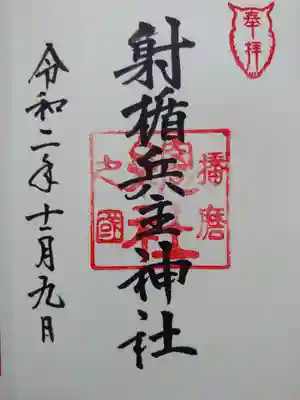 奉拝
射楯兵主神社
播磨
之國
総社
令和二年十二月九日